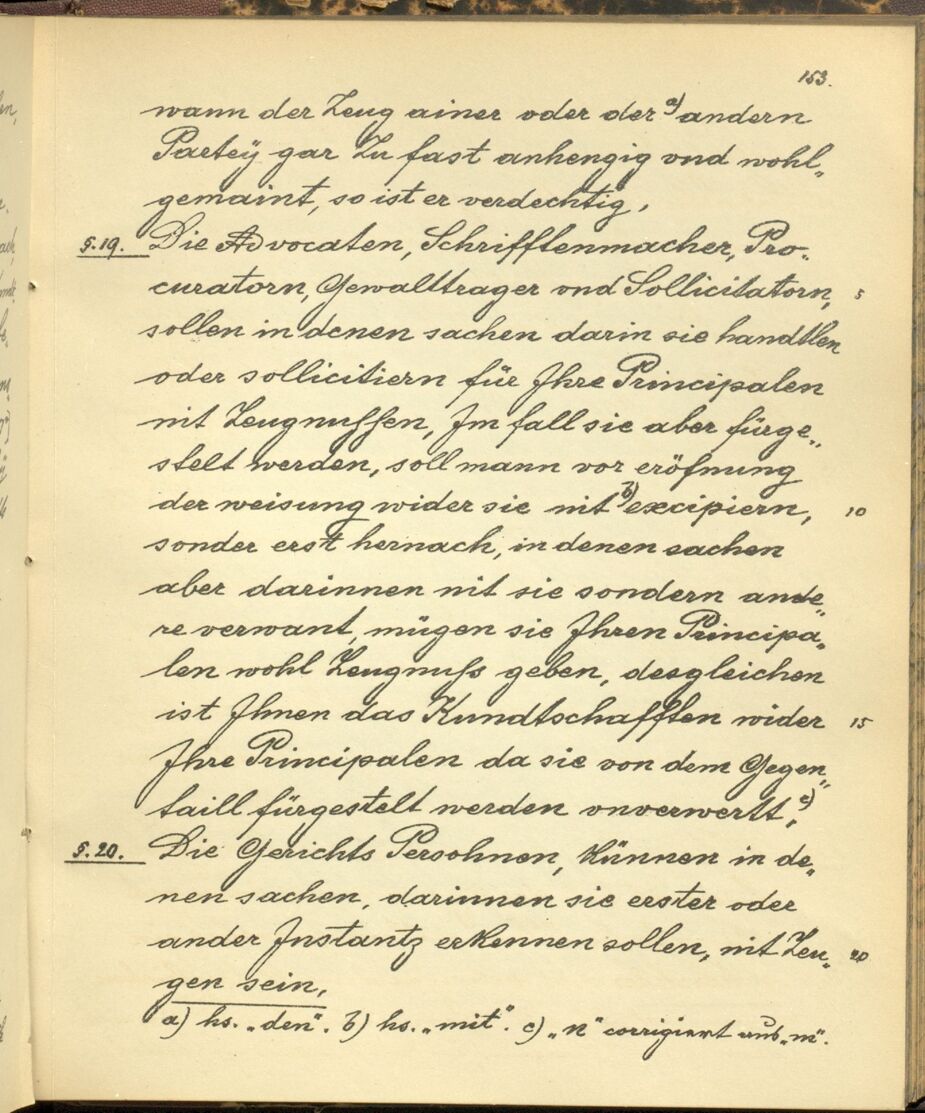 153.
wann der Zeug ainer oder der a) andern
Partey gar Zu fast anhengig vnd wohl„
gemaint, so ist er verdechtig,
§.19. Die Advocaten, Schrifftenmacher, Pro„
curatorn, Gewalttrager vnd Sollicitatorn, 5
sollen in denen sachen darin sie handtlen
oder sollicitiern für Ihre Principalen
nit Zeugnussen, Im fall sie aber fürge„
stelt werden, soll mann vor eröfnung
der weisung wider sie nit b) excipiern, 10
sonder erst hernach, in denen sachen
aber darinnen nit sie sondern ande„
re verwant, mügen sie Ihren Principa„
len wohl Zeugnuss geben, desgleichen
ist Ihnen das Kundtschafften wider 15
Ihre Principalen da sie von dem Gegen„
taill fürgestelt werden vnverwertt, c)
§.20. Die Gerichts Persohnen, künnen in de„
nen sachen, darinnen sie erster oder
ander Instantz erkennen sollen, nit Zeu„ 20
gen sein,
a) hs. „den“. b) hs. „mit“. c) „n“ corrigiert aus „m“.